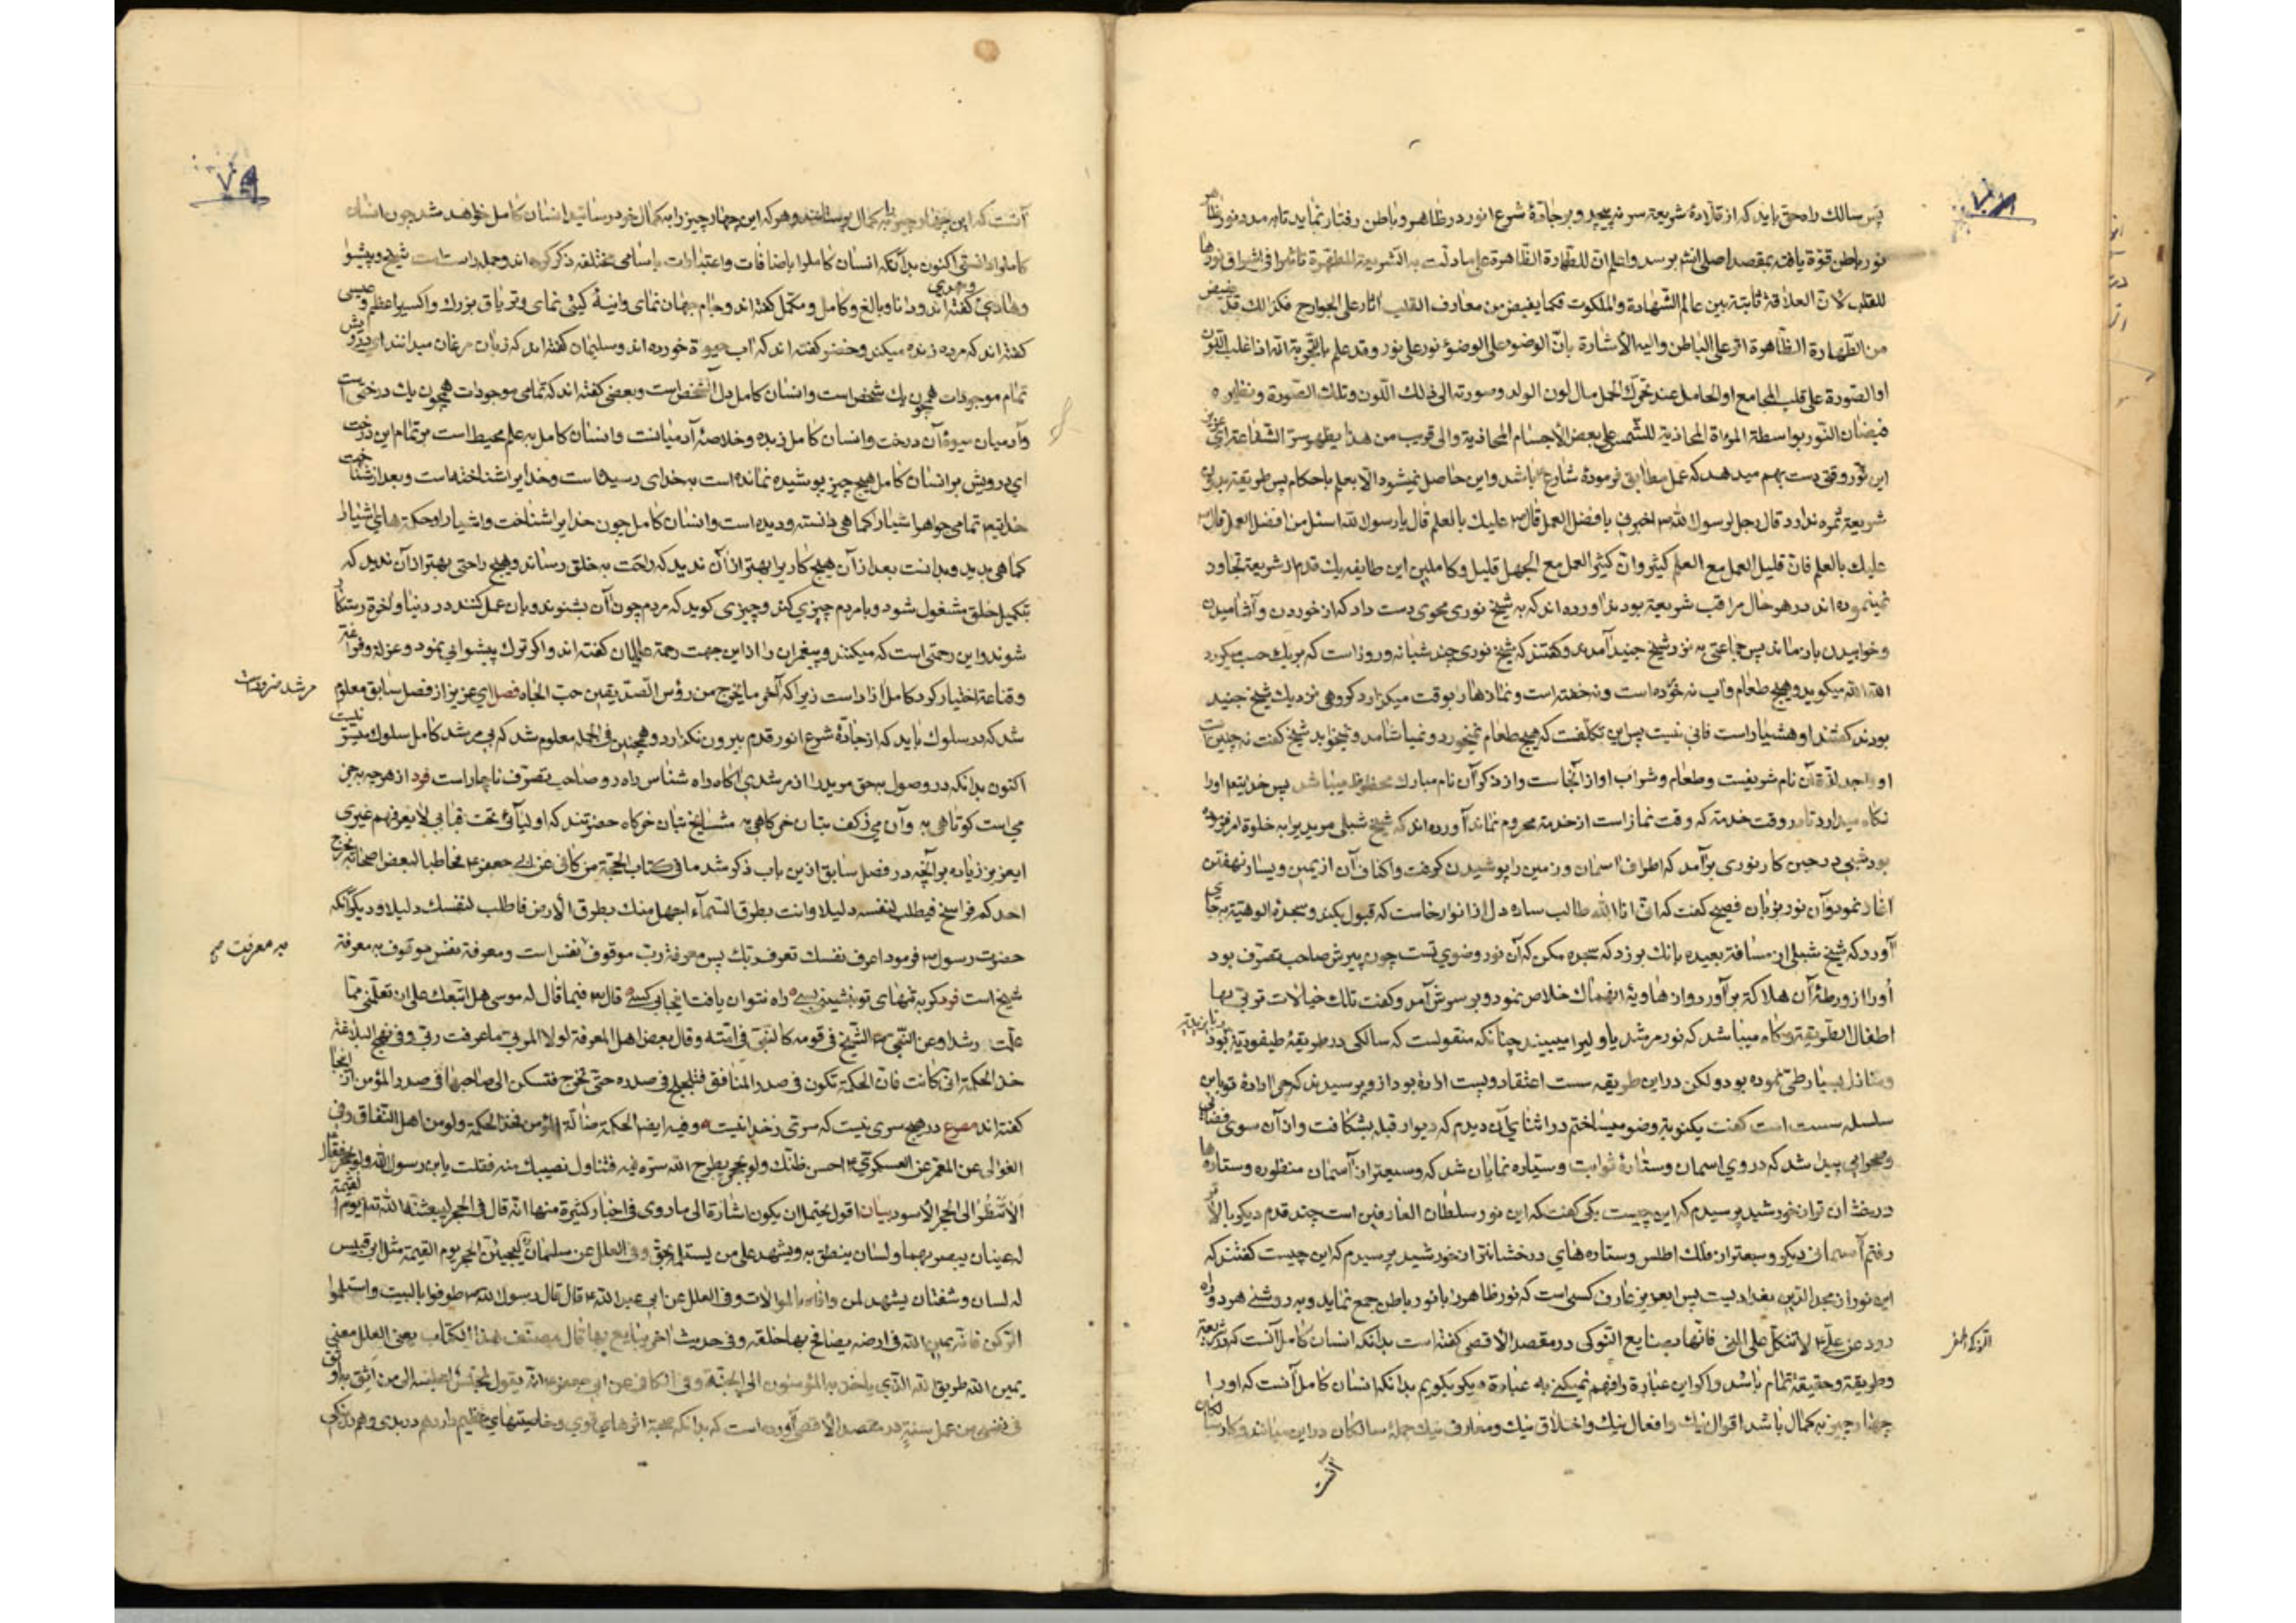 پس سالك راه حق بايد كه از قلادهٔ شريعة سر نه پيچد و بر جادهٔ شرع انور در ظاهر و باطن رفتار نمايد تا به مدد نور ظاهر
نور باطن قوة يافته بمقصد اصلی برسد واعلم ان للطهارة الظاهرة على ما دلت به الشريعة المطهرة تاثيرا فی اشراق نورها
للقلب لان العلاقة ثابتة بين عالم الشهادة والملكوت فكما يفيض من معارف القلب اثار على الجوارح فكذالك قد يفيض
من الطهارة الظاهرة اثر على الباطن واليه الاشارة بان الوضوء على الوضوء نور على نور وقد علم بالتجربة انه اذا غلب اللون
او الصورة على قلب المجامع او الحامل عند تحرك الحمل مال لون الولد وصورته الى ذلك اللون وتلك الصورة ونظيره
فيضان النور بواسطة المرءاة المحاذية للشمس على بعض الاجسام المحاذية والى قريب من هذا يظهر سر الشفاعة ای عزيز
اين نور وقتی دست بهم ميدهد كه عمل مطابق فرمودهٔ شارع باشد واين حاصل نميشود الا بعلم باحكام پس طريقة بدون
شريعة ثمره ندارد قال رجل لرسول الله ص اخبرنی بافضل العمل قال ص عليك بالعلم قال يا رسول الله اسئل من افضل العمل قال ص
عليك بالعلم فان قليل العمل مع العلم كثير وان كثير العمل مع الجهل قليل وكاملين اين طايفه يك قدم از شريعة تجاوز
نمينموده اند در هر حال مراقب شريعة بودند آورده اند كه به شيخ نوری محوی دست داد كه از خوردن و آشاميدن
وخوابيدن باز ماند پس جماعتی به نزد شيخ جنيد آمدند وگفتند كه شيخ نوری چند شبانه روز است كه بر يك حسب ميگردد
الله الله ميگويد وهيچ طعام وآب نه خورده است ونه خفته است ونمازها را بوقت ميگزارد گروهی نزديك شيخ جنيد
بودند گفتند او هشيار است فانی نيست پس اين تكلفت كه هيچ طعام نميخورد ونمياشامد ونميخوابد شيخ گفت نه چنين است
او واجد لذة آن نام شريفست وطعام وشراب او از آنجاست واز ذكر آن نام مبارك محفوظ ميباشد پس خدايتعم اورا
نگاه ميدارد تا در وقت خدمة كه وقت نماز است از خدمة محروم نماند آورده اند كه شيخ شبلی مريديرا به خلوة امر فرموده
بود شبی در حين كار نوری برآمد كه اطراف اسمان وزمين را پوشيدن گرفت واكناف آن از يمين ويسار نهفتن
آغاز نمود وآن نور بزبان فصيح گفت كه انی انا الله طالب ساده دل از انوار خاست كه قبول بكند وسجدهٔ الوهية بجای
آورد كه شيخ شبلی از مسافة بعيده بانك بر زد كه سجده مكن كه آن نور وضوی تست چون پيرش صاحب تصرف بود
اورا از ورطهٔ آن هلاكة برآورد واز هاويهٔ انهماك خلاص نمود وبر سرش آمد وگفت تلك خيالات تربی بها
اطفال الطريقة وگاه ميباشد كه نور مرشد يا وليرا ميبيند چنانكه منقولست كه سالكی در طريقهٔ طيفوريه بود
ومنازل بسيار طی نموده بود ولكن در اين طريقه سست اعتقاد وپست اراده بود از و پرسيدند كه چرا ارادهٔ تو باين
سلسله سست است گفت يكنوبة وضو ميساختم در اثنای آن ديدم كه ديوار قبله بشكافت واز آن سوی فضائی
وصحرائی پيدا شد كه در وی اسمان وستارهٔ ثوابت وسياره نمايان شد كه وسيعتر از آسمان منظوره وستاره ها
درخشان تر از خورشيد پرسيدم كه اين چيست يكی گفت كه اين نور سلطان العارفين است چند قدم ديگر بالاتر
رفتم آسمانی ديگر وسيعتر از فلك اطلس وستاره های درخشانتر از خورشيد پرسيدم كه اين چيست گفتند كه
اين نور از مجد الدين بغداديست پس ايعزيز عارف كسی است كه نور ظاهر را با نور باطن جمع نمايد وبه روشنی هر دو راه
رود عن علی ع لا تتكل على المنی فانها بضايع النوكی در مقصد الاقصی گفته است بدانكه انسان كامل آنست كه در شريعة
وطريقة وحقيقة تمام باشد واگر اين عبارة را فهم نميكنی به عبارة ديگر بگويم بدانكه انسان كامل آنست كه اورا
چهار چيز به كمال باشد اقوال نيك وافعال نيك واخلاق نيك ومعارف نيك جملهٔ سالكان در اين ميانند وكار سالكان
آنست
آنست كه اين چهار چيز را به كمال برسانند وهر كه اين چهار چيز را به كمال خود رسانيد انسان كامل خواهد شد چون انسان
كامل را دانستی اكنون بدانكه انسان كامل را باضافات واعتبارات باسامی مختلفه ذكر كرده اند وجمله راست است شيخ وپيشوا
وهادی ومهدی گفته اند ودانا وبالغ وكامل ومكمل گفته اند وجام جهان نمای وآينهٔ گيتی نمای وترياق بزرك واكسير اعظم وعيسی
گفته اند كه مرده زنده ميكند وخضر گفته اند كه آب حيوة خورده اند وسليمان گفته اند كه زبان مرغان ميدانند ای درويش
تمام موجودات همچون يك شخص است وانسان كامل دل آنشخص است وبعضی گفته اند كه تمامی موجودات همچون يك درختی است
وآدميان ميوهٔ آن درخت وانسان كامل زبده وخلاصهٔ آدميانست وانسان كامل به علم محيط است بر تمام اين درخت
ای درويش بر انسان كامل هيچ چيز پوشيده نمانده است به خدای رسيده است وخدايرا شناخته است وبعد از شناخت
خدايتعم تمامی جواهر اشيا را كما هی دانسته وديده است وانسان كامل چون خدايرا شناخت واشيا را وحكمة های اشيا را
كما هی بديد وبدانست بعد از آن هيچ كاريرا بهتر از آن نديد كه راحت به خلق رساند وهيچ راحتی بهتر از آن نديد كه
بتكميل خلق مشغول شود وبا مردم چيزی كند وچيزی گويد كه مردم چون آن بشنوند وبان عمل كنند در دنيا واخرة رستگار
شوند واين رحمتی است كه ميكنند وپيغمبران را از اين جهت رحمة عالميان گفته اند واگر ترك پيشوايی نمود وعزلة وفراغة
وقناعة اختيار كرد كامل آزاد است زيرا كه آخر ما يخرج من رؤس الصديقين حب الجاه فصل ای عزيز از فصل سابق معلوم
مرشد ضرور است
شد كه در سلوك بايد كه از جادهٔ شرع انور قدم بيرون نگذارد وهمچنين فی الجمله معلوم شد كه بی مرشد كامل سلوك ميسر نيست
اكنون بدانكه در وصول به حق مريد را از مرشدی آگاه راه شناس راه رو صاحب تصرف ناچار است فرد از هر چه به جز
می است كوتاهی به وآن می ز كف بتان خرگاهی به مشايخ بتان خرگاه حضرتند كه اوليائی تحت قبابی لا يعرفهم غيری
ايعزيز زياده بر آنچه در فصل سابق از ين باب ذكر شد ما فی كتاب الحجة من كافی عن ابی جعفر ع مخاطبا لبعض اصحابه يخرج
احدكم فراسخ فيطلب لنفسه دليلا وانت بطرق السماء اجهل منك بطرق الارض فاطلب لنفسك دليلا وديگر آنكه
حضرت رسول ص فرمود اعرف نفسك تعرف ربك پس معرفة رب موقوف به معرفت نفس است ومعرفة نفس موقوف به معرفة
شيخ است فرد گر به تنهای تو بنشينی بسی راه نتوان يافت اينجا بی كسی قال ع فيما قال له موسی هل اتبعك على ان تعلمنی مما
علمت رشدا وعن النبی ص الشيخ فی قومه كالنبی فی امته وقال بعض اهل المعرفة لولا المربی ما عرفت ربی وفی نهج البلاغة
خذ الحكمة انی كانت فان الحكمة تكون فی صدر المنافق فتلجلج فی صدره حتی تخرج فتسكن الی صاحبها فی صدر المؤمن از اينجا
گفته اند مصرع در هيچ سری نيست كه سری ز خدا نيست وفيه ايضا الحكمة ضالة المؤمن فخذ الحكمة ولو من اهل النفاق وفی
الغوالی عن المعمر عن العسكری ع احسن ظنك ولو بحجر يطرح الله سره فيه فتناول نصيبك منه فقلت يا بن رسول الله ولو بحجر فقال
الا تنظروا الى الحجر الاسود بيان اقول يحتمل ان يكون اشارة الى ما روی فی اخبار كثيرة منها انه قال فی الحجر ليبعثنه الله تعم يوم القيمة
له عينان يبصر بهما ولسان ينطق به ويشهد على من يستلمه بحق وفی العلل عن سلمان ليجيئن الحجر يوم القيمة مثل ابی قبيس
له لسان وشفتان يشهد لمن وافاه بالموالات وفی العلل عن ابی عبد الله ع قال قال رسول الله ص طوفوا بالبيت واستلموا
الركن فانه يمين الله فی ارضه يصافح بها خلقه وفی حديث اخر يبايع بها قال مصنف هذا الكتاب يعنی العلل معنی
يمين الله طريق الله الذی ياخذ به المؤمنون الى الجنة وفی الكافی عن ابی جعفر ع انه يقول لمجلس اجلسه الى من اثق به اوثق
فی نفسی من عمل سنة در مقصد الاقصی آورده است كه بدانكه صحبة اثرهای قوی وخاصيتهای عظيم دارد هم در بدی وهم در نيكی